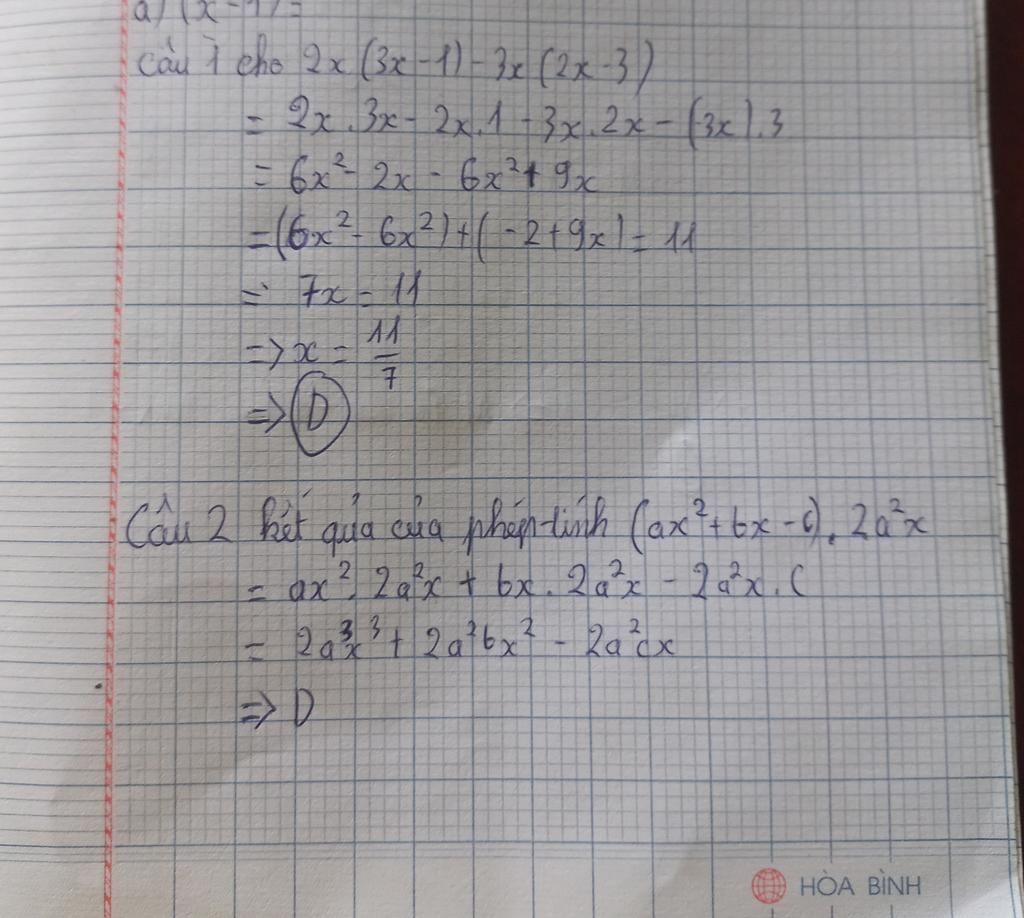 a) (x - 1) =
Câu 1 cho 2x (3x - 1) - 3x (2x - 3)
= 2x . 3x - 2x . 1 - 3x . 2x - (3x) . 3
= 6x² - 2x - 6x² + 9x
= (6x² - 6x²) + ( - 2 + 9x) = 11
= 7x = 11
=> x = 11/7
=> D
Câu 2 kết quả của phép tính (ax² + bx - c) . 2a²x
= ax² . 2a²x + bx . 2a²x - 2a²x . c
= 2a³x³ + 2a²bx² - 2a²cx
=> D
HÒA BÌNH